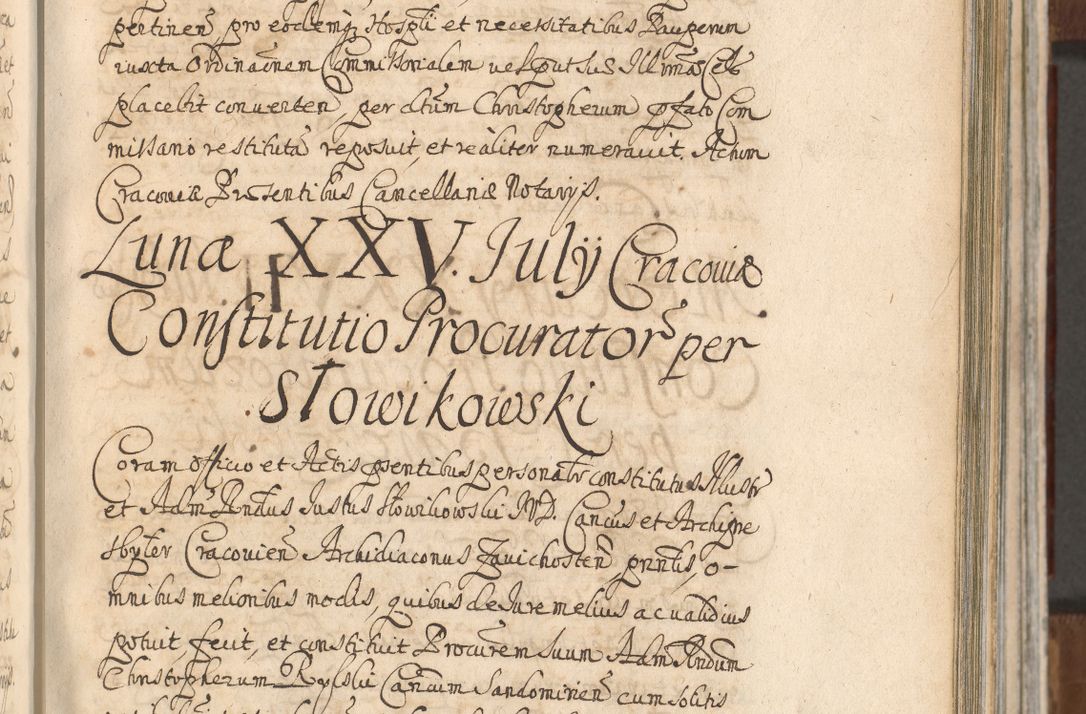 pertinen̄ pro eodemq; Hospłi et necessitatibus Pauperum
iuxta Ordinac̄nem Commissorialem vel put Suæ Illmæ Cels
placebit conuerten̄, per dtum Christopherum pfato Com
missario restituta reposuit, et realiter numerauit. Actum
Cracouiæ Præsentibus Cancellariæ Notarijs.
Lunæ XXV. Julij Cracouiæ
Constitutio Procurator̄ per
Słowikowski
Coram Officio et Actis p̄sentibus personalr constitutus Illustr
et Adm Rndus Justus Słowikowski JVD. Cancus et Archipre
sbyter Cracouien̄ Archidiaconus Zauichosten̄ pnntis, o-
mnibus melioribus modis, quibus de Jure melius ac validius
potuit fecit, et constituit Procurem suum Adm Rndum
Christopherum Rylski Cancum Sandomirien̄ cum solitis